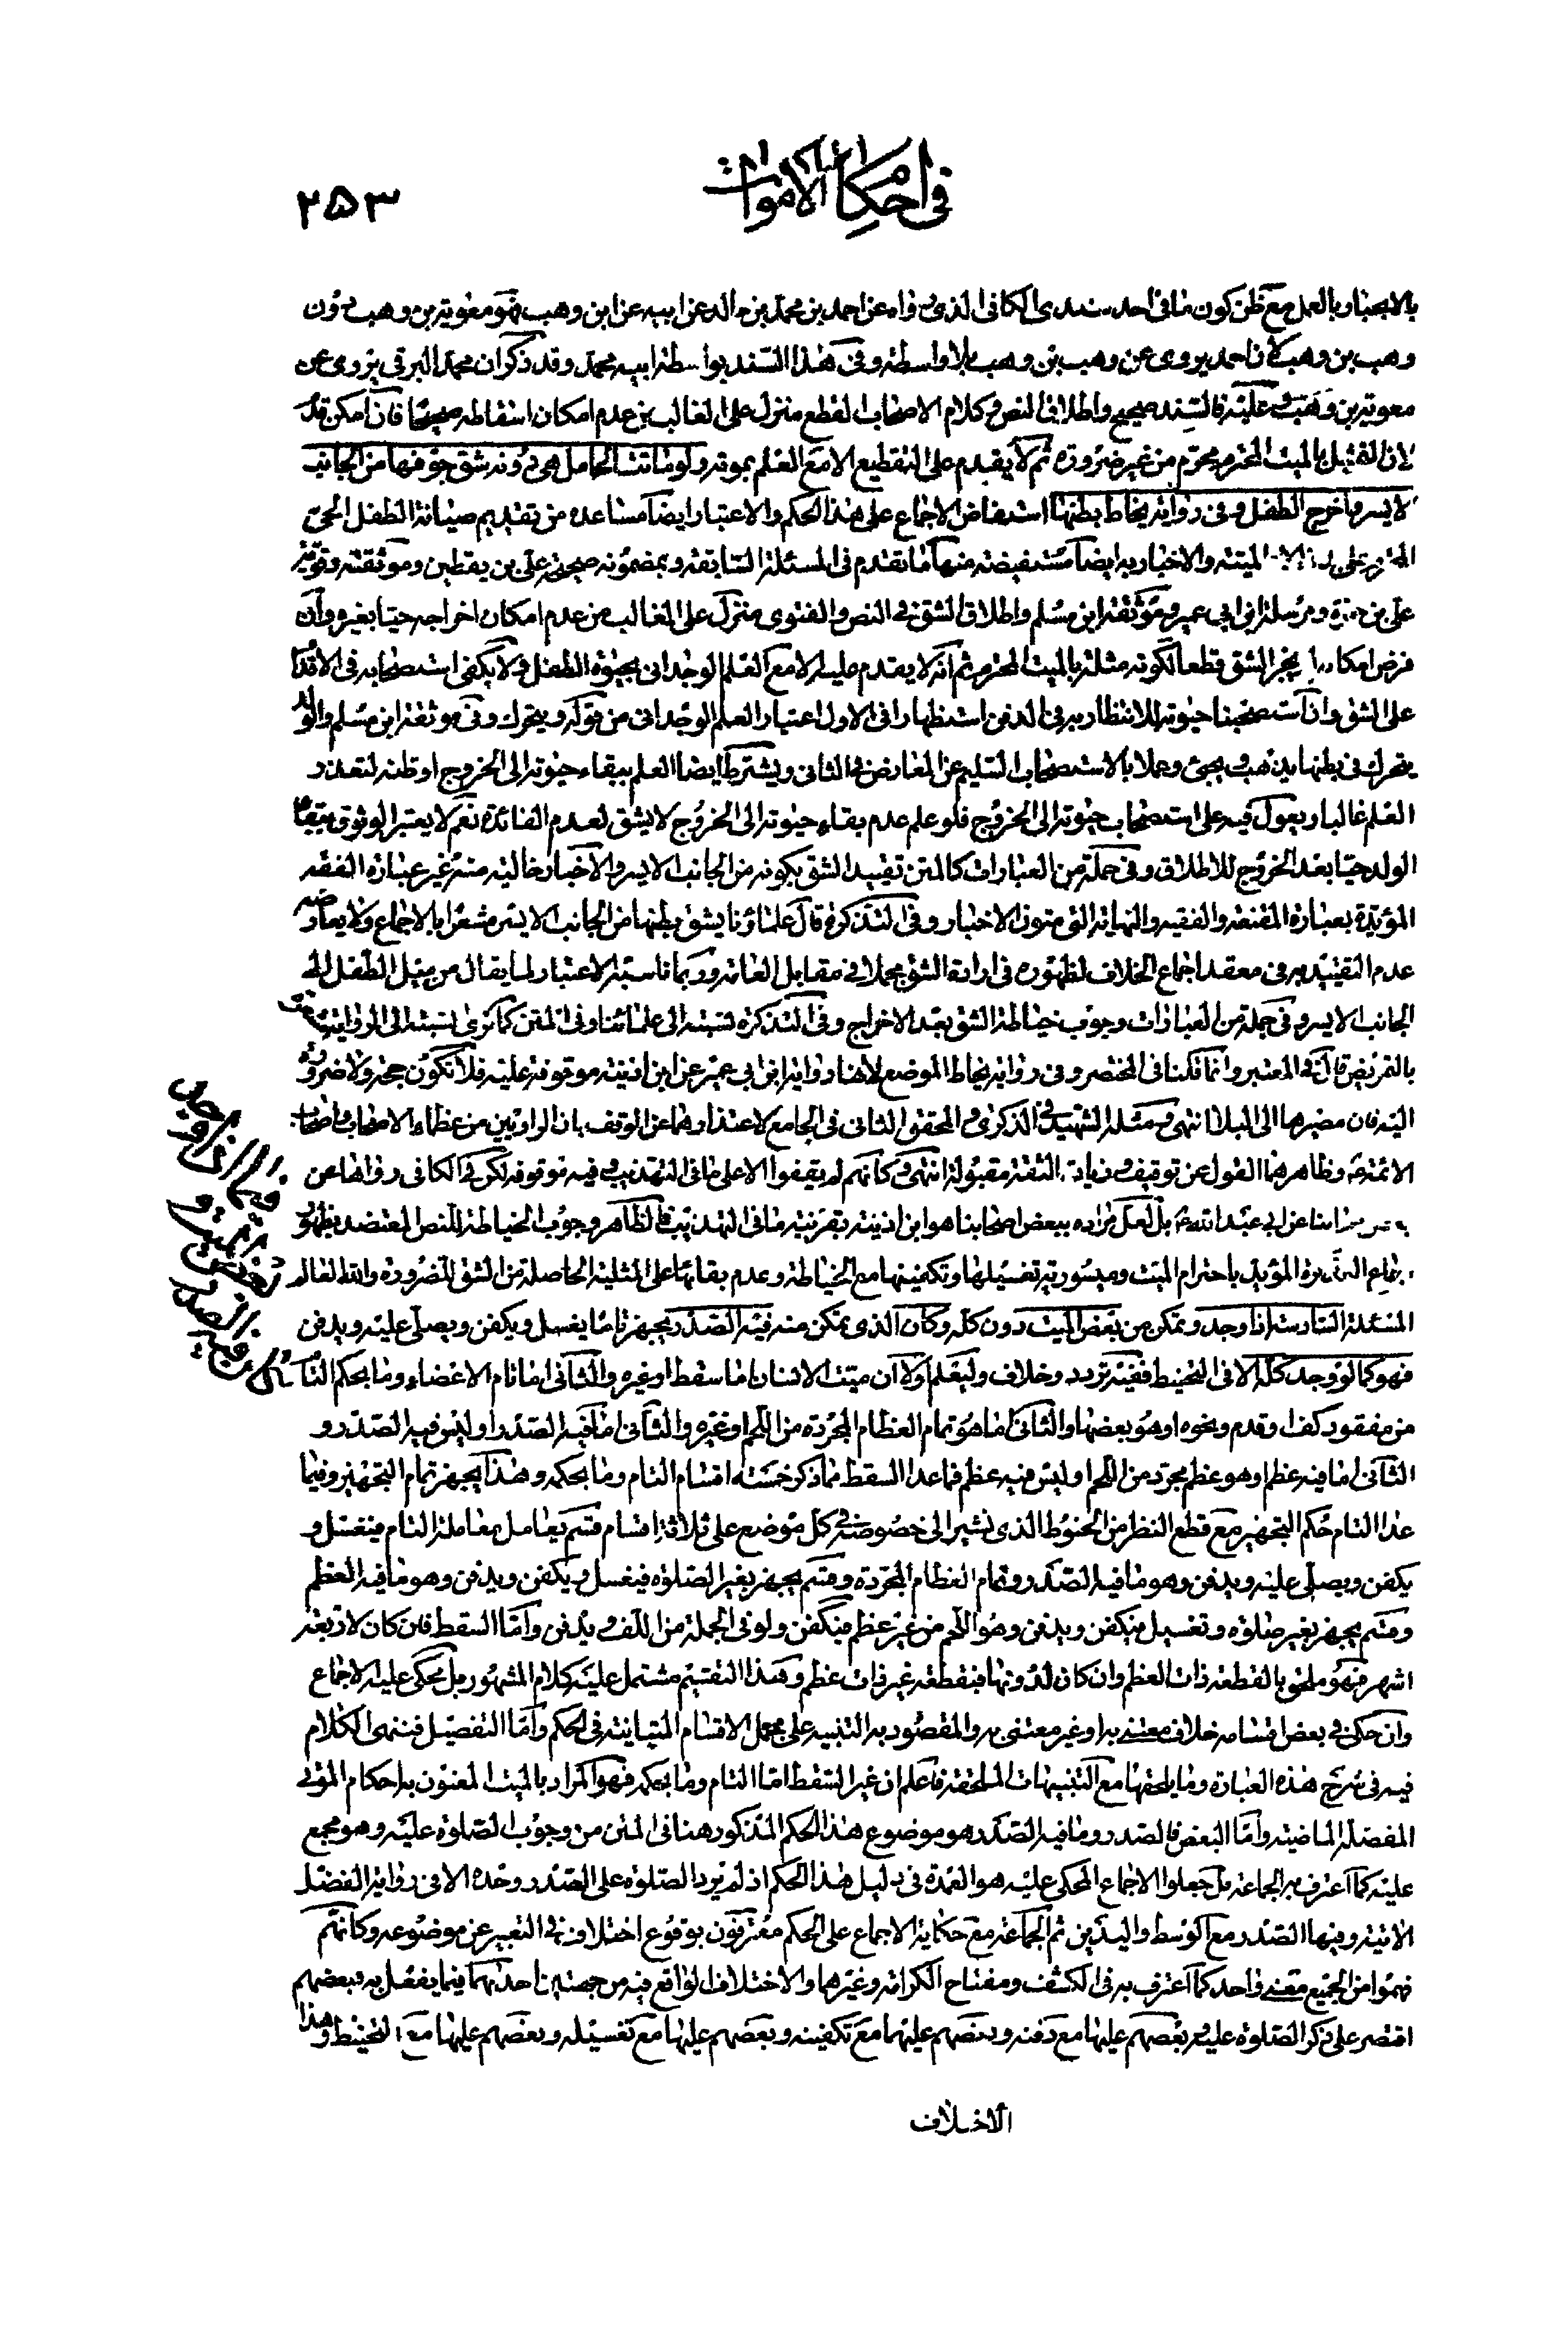 في احكام الاموات
٢٥٣
بالاجبار بالعمل مع ظن كون ما في احد سندى الكافى الذى رواه عن احمد بن محمد بن خالد عن ابيه عن ابن وهب فهو معوية بن وهب دون
وهب بن وهب لان احمد يروى عن وهب بن وهب بلا واسطة وفى هذا السند بواسطة ابيه محمد وقد ذكر ان محمد البرقى يروى عن
معوية بن وهب وعليه فالسند صحيح واطلاق النص وكلام الاصحاب القطع منزل على الغالب من عدم امكان اسقاطه صحيحا فان امكن قدم
لان التمثيل بالميت المحترم محرم من غير ضرورة ثم لا يقدم على التقطيع الا مع العلم بموته ولو ماتت الحامل هى دونه شق جوفها من الجانب
الايسر واخرج الطفل وفى رواية يخاط بطنها استفاض الاجماع على هذا الحكم والاعتبار ايضا مساعده من تقديم صيانة الطفل الحى
المحترم على الميتة والاخبار به ايضا مستفيضة منها ما تقدم فى المسئلة السابقة وبمضمونه صحيحة على بن يقطين وموثقته وقوية
على بن حمزة ومرسلة ابن ابي عمير وموثقة ابن مسلم واطلاق الشق فى النص والفتوى منزل على الغالب من عدم امكان اخراجه حيا بغيره وان
فرض امكانه لم يجز الشق قطعا لكونه مثلة بالميت المحترم ثم انه لا يقدم عليه الا مع العلم الوجدانى بحيوة الطفل ولا يكفى استصحابه فى الاقدام
على الشق وان استصحبنا حيوته للانتظار به فى الدفن استظهارا فى الاول اعتبار العلم الوجدانى من قوله ويتحرك وفى موثقة ابن مسلم والولد
يتحرك فى بطنها يذهب ويجئ وعملا بالاستصحاب السليم عن المعارض فى الثانى ويشترط ايضا العلم ببقاء حيوته الى الخروج او ظنه لتعذر
العلم غالبا ويعول فيه على استصحاب حيوته الى الخروج فلو علم عدم بقاء حيوته الى الخروج لا يشق لعدم الفائدة نعم لا يعتبر الوثوق ببقاء
الولد حيا بعد الخروج للاطلاق وفى جملة من العبارات كالمتن تقييد الشق بكونه من الجانب الايسر والاخبار خالية منه غير عبارة الفقه
المؤيدة بعبارة المقنعة والفقيه والنهاية التى متون الاخبار وفى التذكرة قال علماؤنا يشق بطنها من الجانب الايسر مشعرا بالاجماع ولا يعارضه
عدم التقييد به فى معقد اجماع الخلاف لظهوره فى ارادة الشق مجملا فى مقابل العامة وربما ناسبه الاعتبار لما يقال من ميل الطفل الى
الجانب الايسر وفى جملة من العبارات وجوب خياطة الشق بعد الاخراج وفى التذكرة نسبته الى علمائنا وفى المتن كما ترى نسبته الى الرواية
بالتمريض قال فى المعتبر وانما قلنا فى المختصر وفى رواية يخاط الموضع لانها رواية ابن ابي عمير عن ابن اذينة موقوفة عليه فلا تكون حجة ولا ضرورة
اليه فان مصيرها الى البلا انتهى ومثله الشهيد فى الذكرى والمحقق الثانى فى الجامع لا عتذارهما عن الوقف بان الراويين من عظماء الاصحاب واصحاب
الائمة ع وظاهرهما القول عن توقيف وزيادة الثقة مقبولة انتهى وكانهم لم يقفوا الا على ما فى التهذيب وفيه موقوفه لكن فى الكافى رواها عن
اصحابنا عن ابى عبد الله ع بل لعل مراده ببعض اصحابنا هو ابن اذينة بقرينة ما فى التهذيب فالظاهر وجوب الخياطة للنص المعتضد بظهور
اجماع التذكرة المؤيد باحترام الميت وميسورية تغسيلها وتكفينها مع الخياطة وعدم بقائها على المثلية الحاصلة من الشق للضرورة والله العالم
المسئلة السادسة اذا وجد وتمكن من بعض الميت دون كله وكان الذى يمكن منه فيه الصدر يجهز تاما يغسل ويكفن ويصلى عليه ويدفن
فهو كما لو وجد كله الا فى التحنيط ففيه تردد وخلاف وليعلم اولا ان ميت الانسان اما سقط او غيره والثانى اما تام الاعضاء وما بحكم التام
من مفقود كف او قدم ونحوه او هو بعضها والثانى اما هو تمام العظام المجردة من اللحم او غيره والثانى اما فيه الصدر او ليس فيه الصدر و
الثانى اما فيه عظم او هو عظم مجرد من اللحم او ليس فيه عظم فما عدا السقط مما ذكر خمسة اقسام التام وما بحكمه وهذا يجهز تمام التجهيز وفيما
عدا التام حكم التجهيز مع قطع النظر من الحنوط الذى نشير الى خصوصه فى كل موضع على ثلاثة اقسام قسم يعامل معاملة التام فيغسل و
يكفن ويصلى عليه ويدفن وهو ما فيه الصدر وتمام العظام المجردة وقسم يجهز بغير الصلوة فيغسل ويكفن ويدفن وهو ما فيه العظم
وقسم يجهز بغير صلوة وتغسيل فيكفن ويدفن وهو اللحم من غير عظم فيكفن ولو فى الجملة من اللف ويدفن واما السقط فان كان لاربعة
اشهر فهو ملحق بالقطعة ذات العظم وان كان لدونها فبقطعة غير ذات عظم وهذا التقسيم مشتمل عليه كلام المشهور بل محكى عليه الاجماع
وان حكى فى بعض اقسامه خلاف معتنى به او غير معتنى به والمقصود به التنبيه على مجمل الاقسام المتباينة فى الحكم واما التفصيل فينهى الكلام
فيه فى شرح هذه العبارة وما يلحقها مع التنبيهات الملحقة فاعلم ان غير السقط اما التام وما بحكمه فهو المراد بالميت المعنون به احكام الموتى
المفصلة الماضية واما البعض فالصدر وما فيه الصدر هو موضوع هذا الحكم المذكور هنا فى المتن من وجوب الصلوة عليه وهو مجمع
عليه كما اعترف به الجماعة بل جعلوا الاجماع المحكى عليه هو العمدة فى دليل هذا الحكم اذ لم يرد الصلوة على الصدر وحده الا فى رواية الفضل
الاتية وفيها الصدر مع الوسط واليدين ثم الجماعة مع حكاية الاجماع على الحكم معترفون بوقوع اختلاف فى التعبير عن موضوعه وكانهم
فهموا من الجميع معنى واحد كما اعترف به فى الكشف ومفتاح الكرامة وغيرهما والاختلاف الواقع فيه من جهتين احدهما فيما يفعل به فبعضهم
اقتصر على ذكر الصلوة عليه وبعضهم عليها مع دفنه وبعضهم عليهما مع تكفينه وبعضهم عليها مع تغسيله وبعضهم عليها مع التحنيط وهذا
الاختلاف